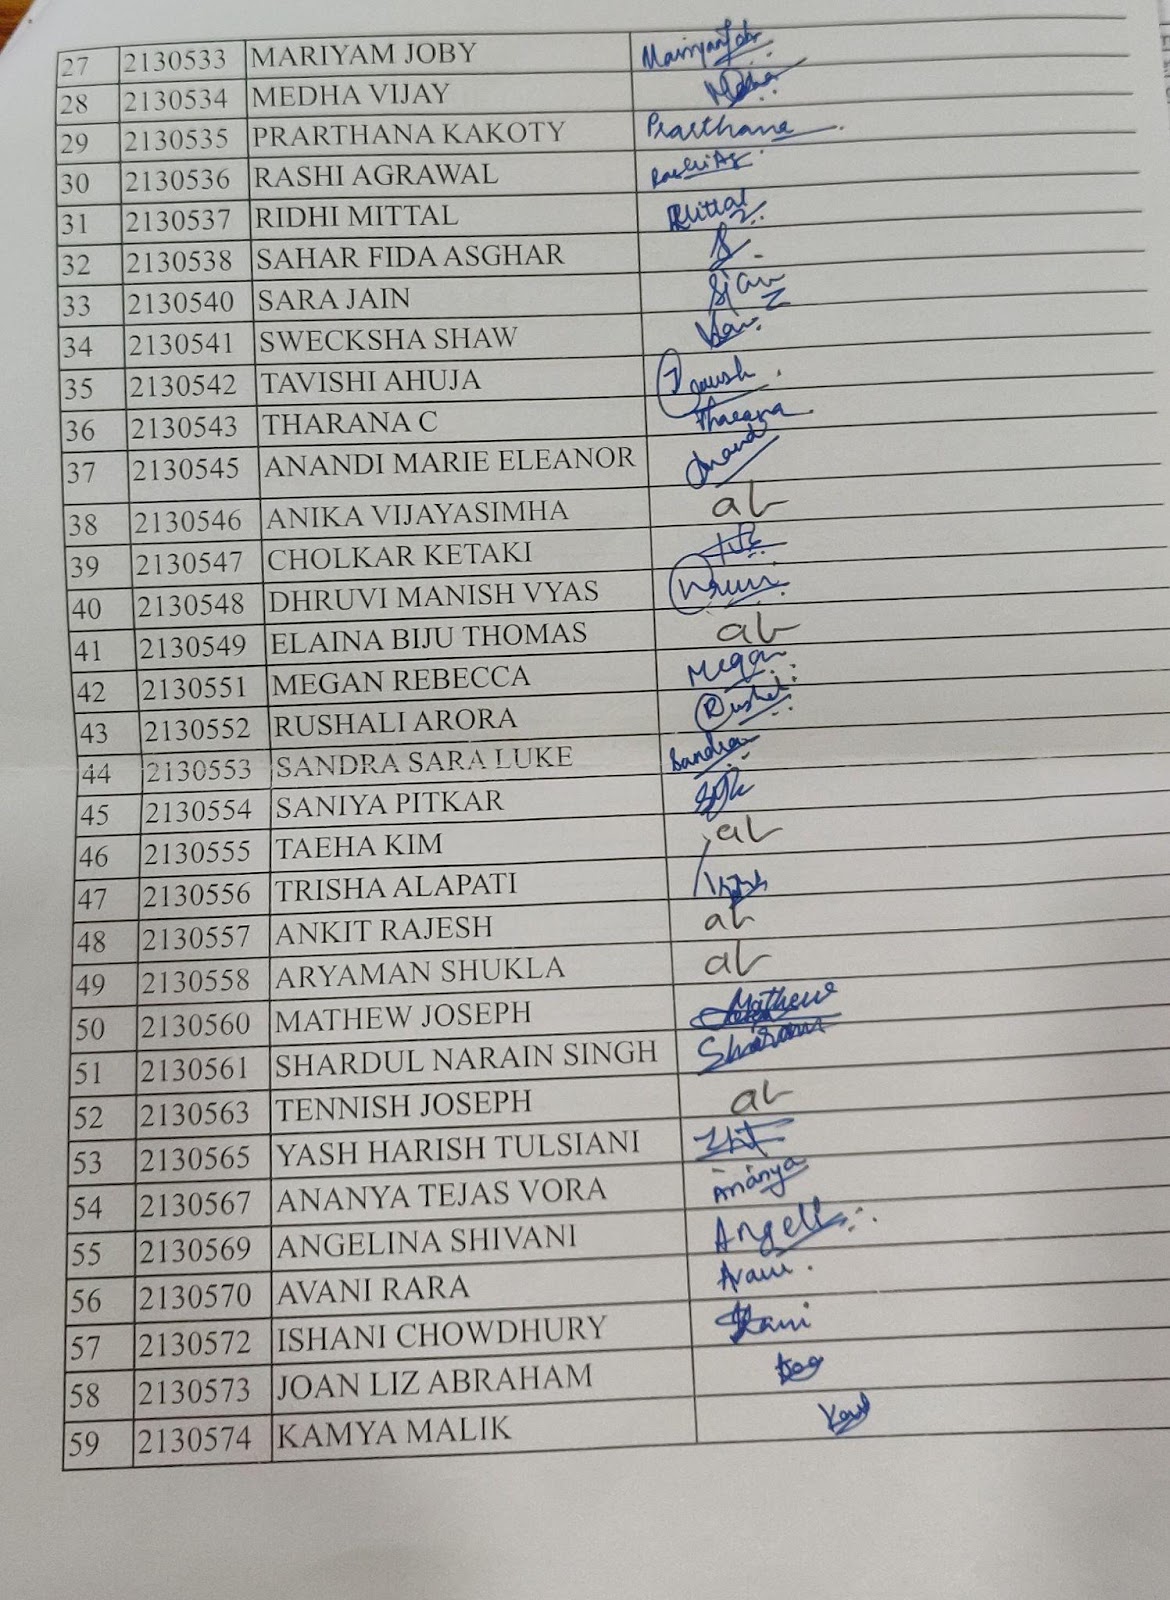 27 2130533 MARIYAM JOBY
28 2130534 MEDHA VIJAY Medha
29 2130535 PRARTHANA KAKOTY Prarthana
30 2130536 RASHI AGRAWAL
31 2130537 RIDHI MITTAL RMittal
32 2130538 SAHAR FIDA ASGHAR
33 2130540 SARA JAIN
34 2130541 SWECKSHA SHAW
35 2130542 TAVISHI AHUJA
36 2130543 THARANA C Tharana
37 2130545 ANANDI MARIE ELEANOR Anandi
38 2130546 ANIKA VIJAYASIMHA ab
39 2130547 CHOLKAR KETAKI
40 2130548 DHRUVI MANISH VYAS
41 2130549 ELAINA BIJU THOMAS ab
42 2130551 MEGAN REBECCA Megan
43 2130552 RUSHALI ARORA
44 2130553 SANDRA SARA LUKE Sandra
45 2130554 SANIYA PITKAR
46 2130555 TAEHA KIM ab
47 2130556 TRISHA ALAPATI
48 2130557 ANKIT RAJESH ab
49 2130558 ARYAMAN SHUKLA ab
50 2130560 MATHEW JOSEPH Mathew
51 2130561 SHARDUL NARAIN SINGH
52 2130563 TENNISH JOSEPH ab
53 2130565 YASH HARISH TULSIANI
54 2130567 ANANYA TEJAS VORA Ananya
55 2130569 ANGELINA SHIVANI
56 2130570 AVANI RARA Avani
57 2130572 ISHANI CHOWDHURY
58 2130573 JOAN LIZ ABRAHAM
59 2130574 KAMYA MALIK